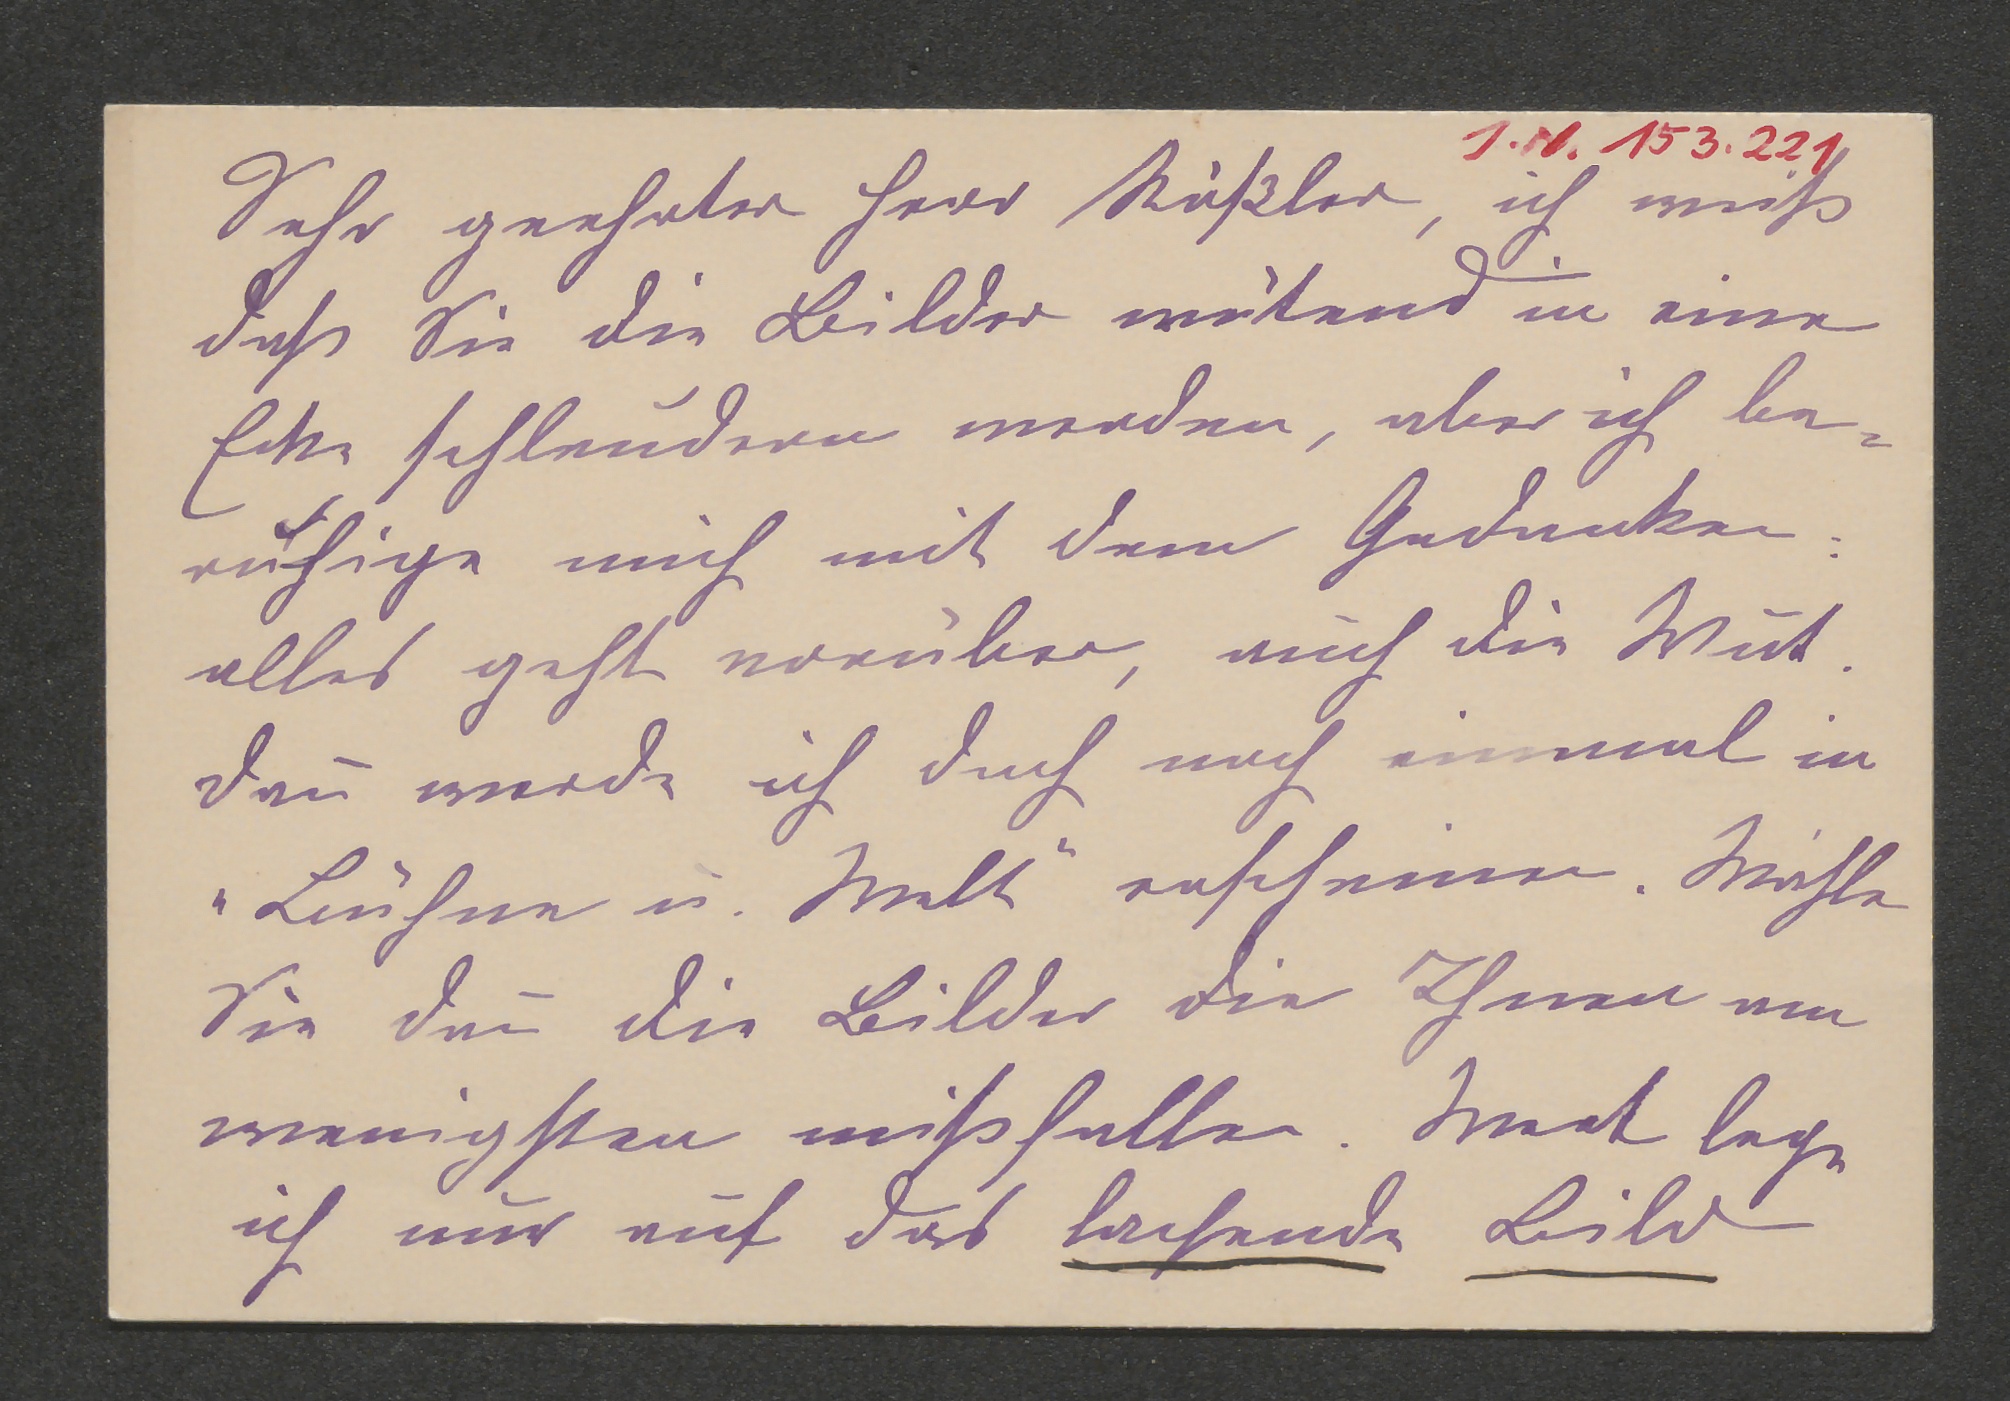 I.N. 153.221
Sehr geehrter Herr Rößler, ich weiß
daß Sie die Bilder wütend in eine
Ecke schleudern werden, aber ich be=
ruhige mich mit dem Gedanken:
alles geht vorüber, auch die Wut.
Dan̄ werde ich doch noch einmal in
"Bühne u. Welt" erscheinen. Wähle
Sie dan̄ die Bilder die Ihnen am
wenigsten mißfallen. Wert lege
ich nur auf das lachende Bild